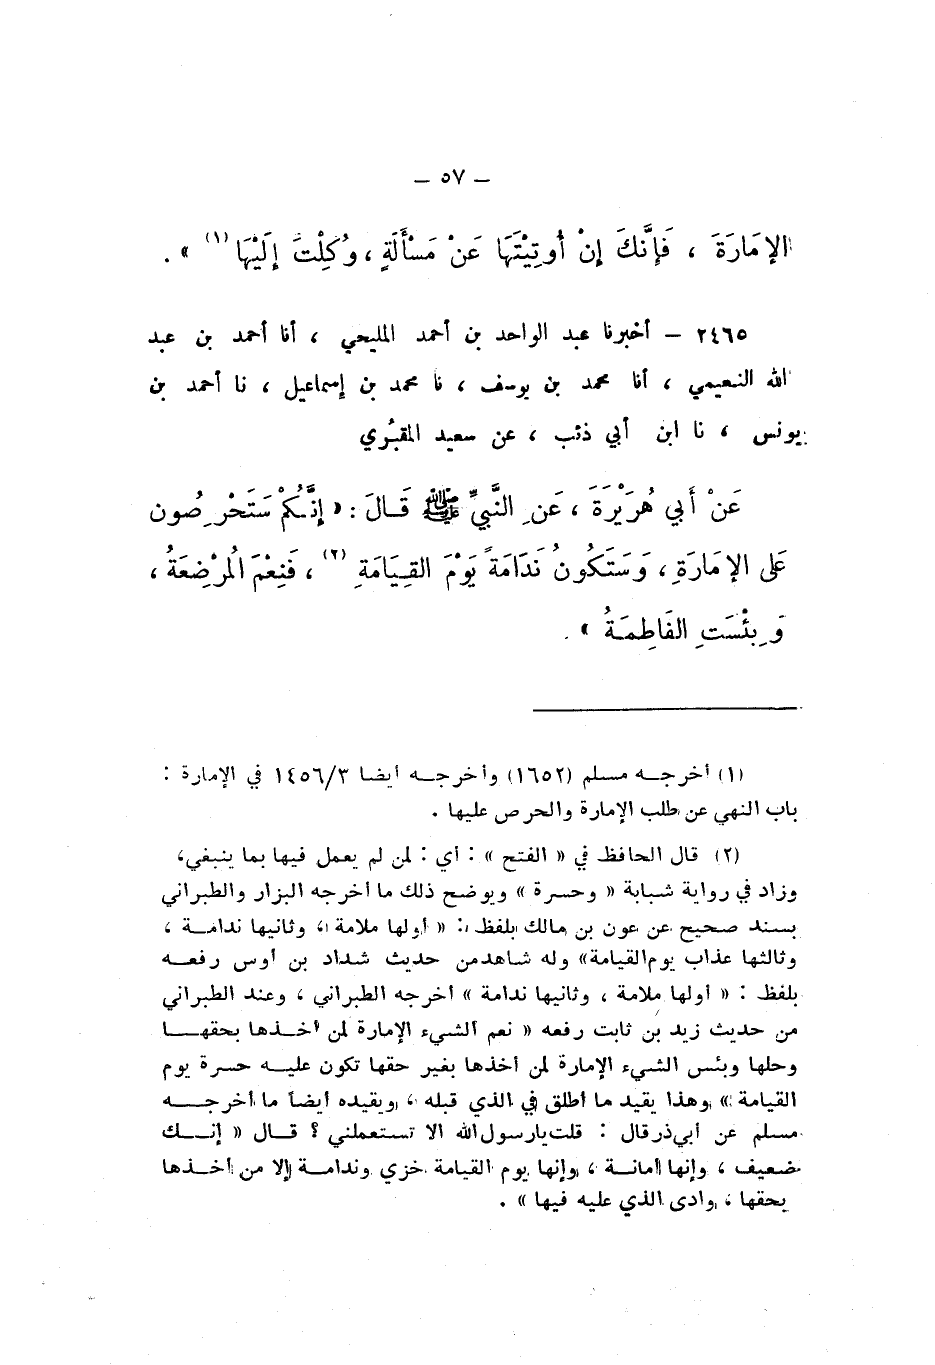 — ٥٧ —
الإمَارَةَ ، فَإنَّكَ إنْ أُوتِيْتَهَا عَنْ مَسْأَلَةٍ ، وُكِلْتَ إلَيْهَا (١) » .
٢٤٦٥ — أخبرنا عبد الواحد بن أحمد المليحي ، أنا أحمد بن عبد
الله النعيمي ، أنا محمد بن يوسف ، نا محمد بن إسماعيل ، نا أحمد بن
يونس ، نا ابن أبي ذئب ، عن سعيد المقبُري
عَنْ أَبي هُرَيْرَةَ ، عَنِ النَّبيِّ ﷺ قَالَ : « إنَّكُمْ سَتَحْرِصُون
عَلى الإمَارَةِ ، وَسَتَكُونُ نَدَامَةً يَوْمَ القِيَامَةِ (٢) ، فَنِعْمَ المُرْضِعَةُ ،
وَبِئْسَتِ الفَاطِمَةُ » .
(١) أخرجه مسلم (١٦٥٢) وأخرجه أيضا ١٤٥٦/٣ في الإمارة :
باب النهي عن طلب الإمارة والحرص عليها .
(٢) قال الحافظ في « الفتح » : أي : لمن لم يعمل فيها بما ينبغي،
وزاد في رواية شبابة « وحسرة » ويوضح ذلك ما أخرجه البزار والطبراني
بسند صحيح عن عون بن مالك بلفظ : « أولها ملامة ، وثانيها ندامة ،
وثالثها عذاب يوم القيامة» وله شاهد من حديث شداد بن أوس رفعه
بلفظ : « أولها ملامة ، وثانيها ندامة » أخرجه الطبراني ، وعند الطبراني
من حديث زيد بن ثابت رفعه « نعم الشيء الإمارة لمن أخذها بحقها
وحلها وبئس الشيء الإمارة لمن أخذها بغير حقها تكون عليه حسرة يوم
القيامة » وهذا يقيد ما أطلق في الذي قبله ، ويقيده أيضاً ما أخرجه
مسلم عن أبي ذر قال : قلت يارسول الله الا تستعملني ؟ قال « إنك
ضعيف ، وإنها أمانة ، وإنها يوم القيامة خزي وندامة إلا من أخذها
بحقها ، وادى الذي عليه فيها » .